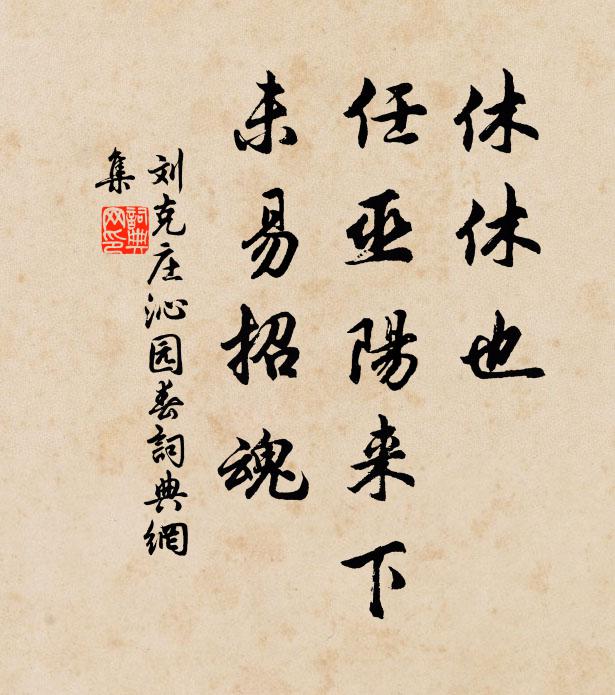 休休也
任巫陽来下
未易招魂
刘克庄沁园春詞典網
集
詞典网印